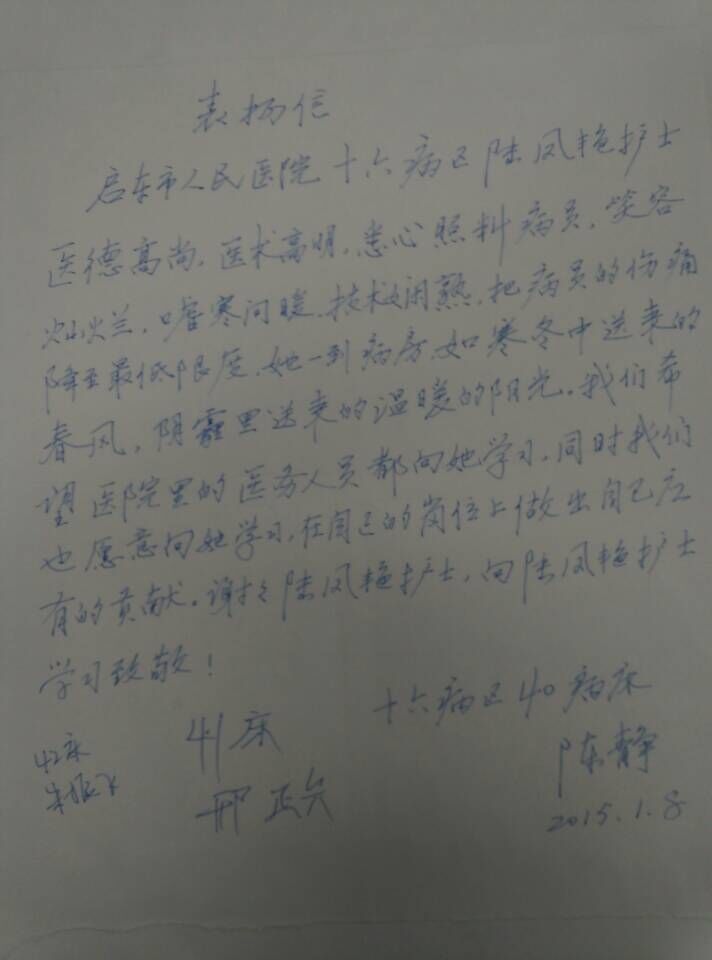 表扬信
启东市人民医院十六病区陆凤艳护士
医德高尚，医术高明，悉心照料病员，笑容
灿烂，嘘寒问暖，技术娴熟，把病员的伤痛
降至最低限度，她一到病房，如寒冬中送来的
春风，阴霾里送来的温暖的阳光。我们希
望医院里的医务人员都向她学习，同时我们
也愿意向她学习，在自己的岗位上做出自己应
有的贡献。谢谢陆凤艳护士，向陆凤艳护士
学习致敬！
十六病区40病床
陈静
2015.1.8
41床
邢正
42床
朱